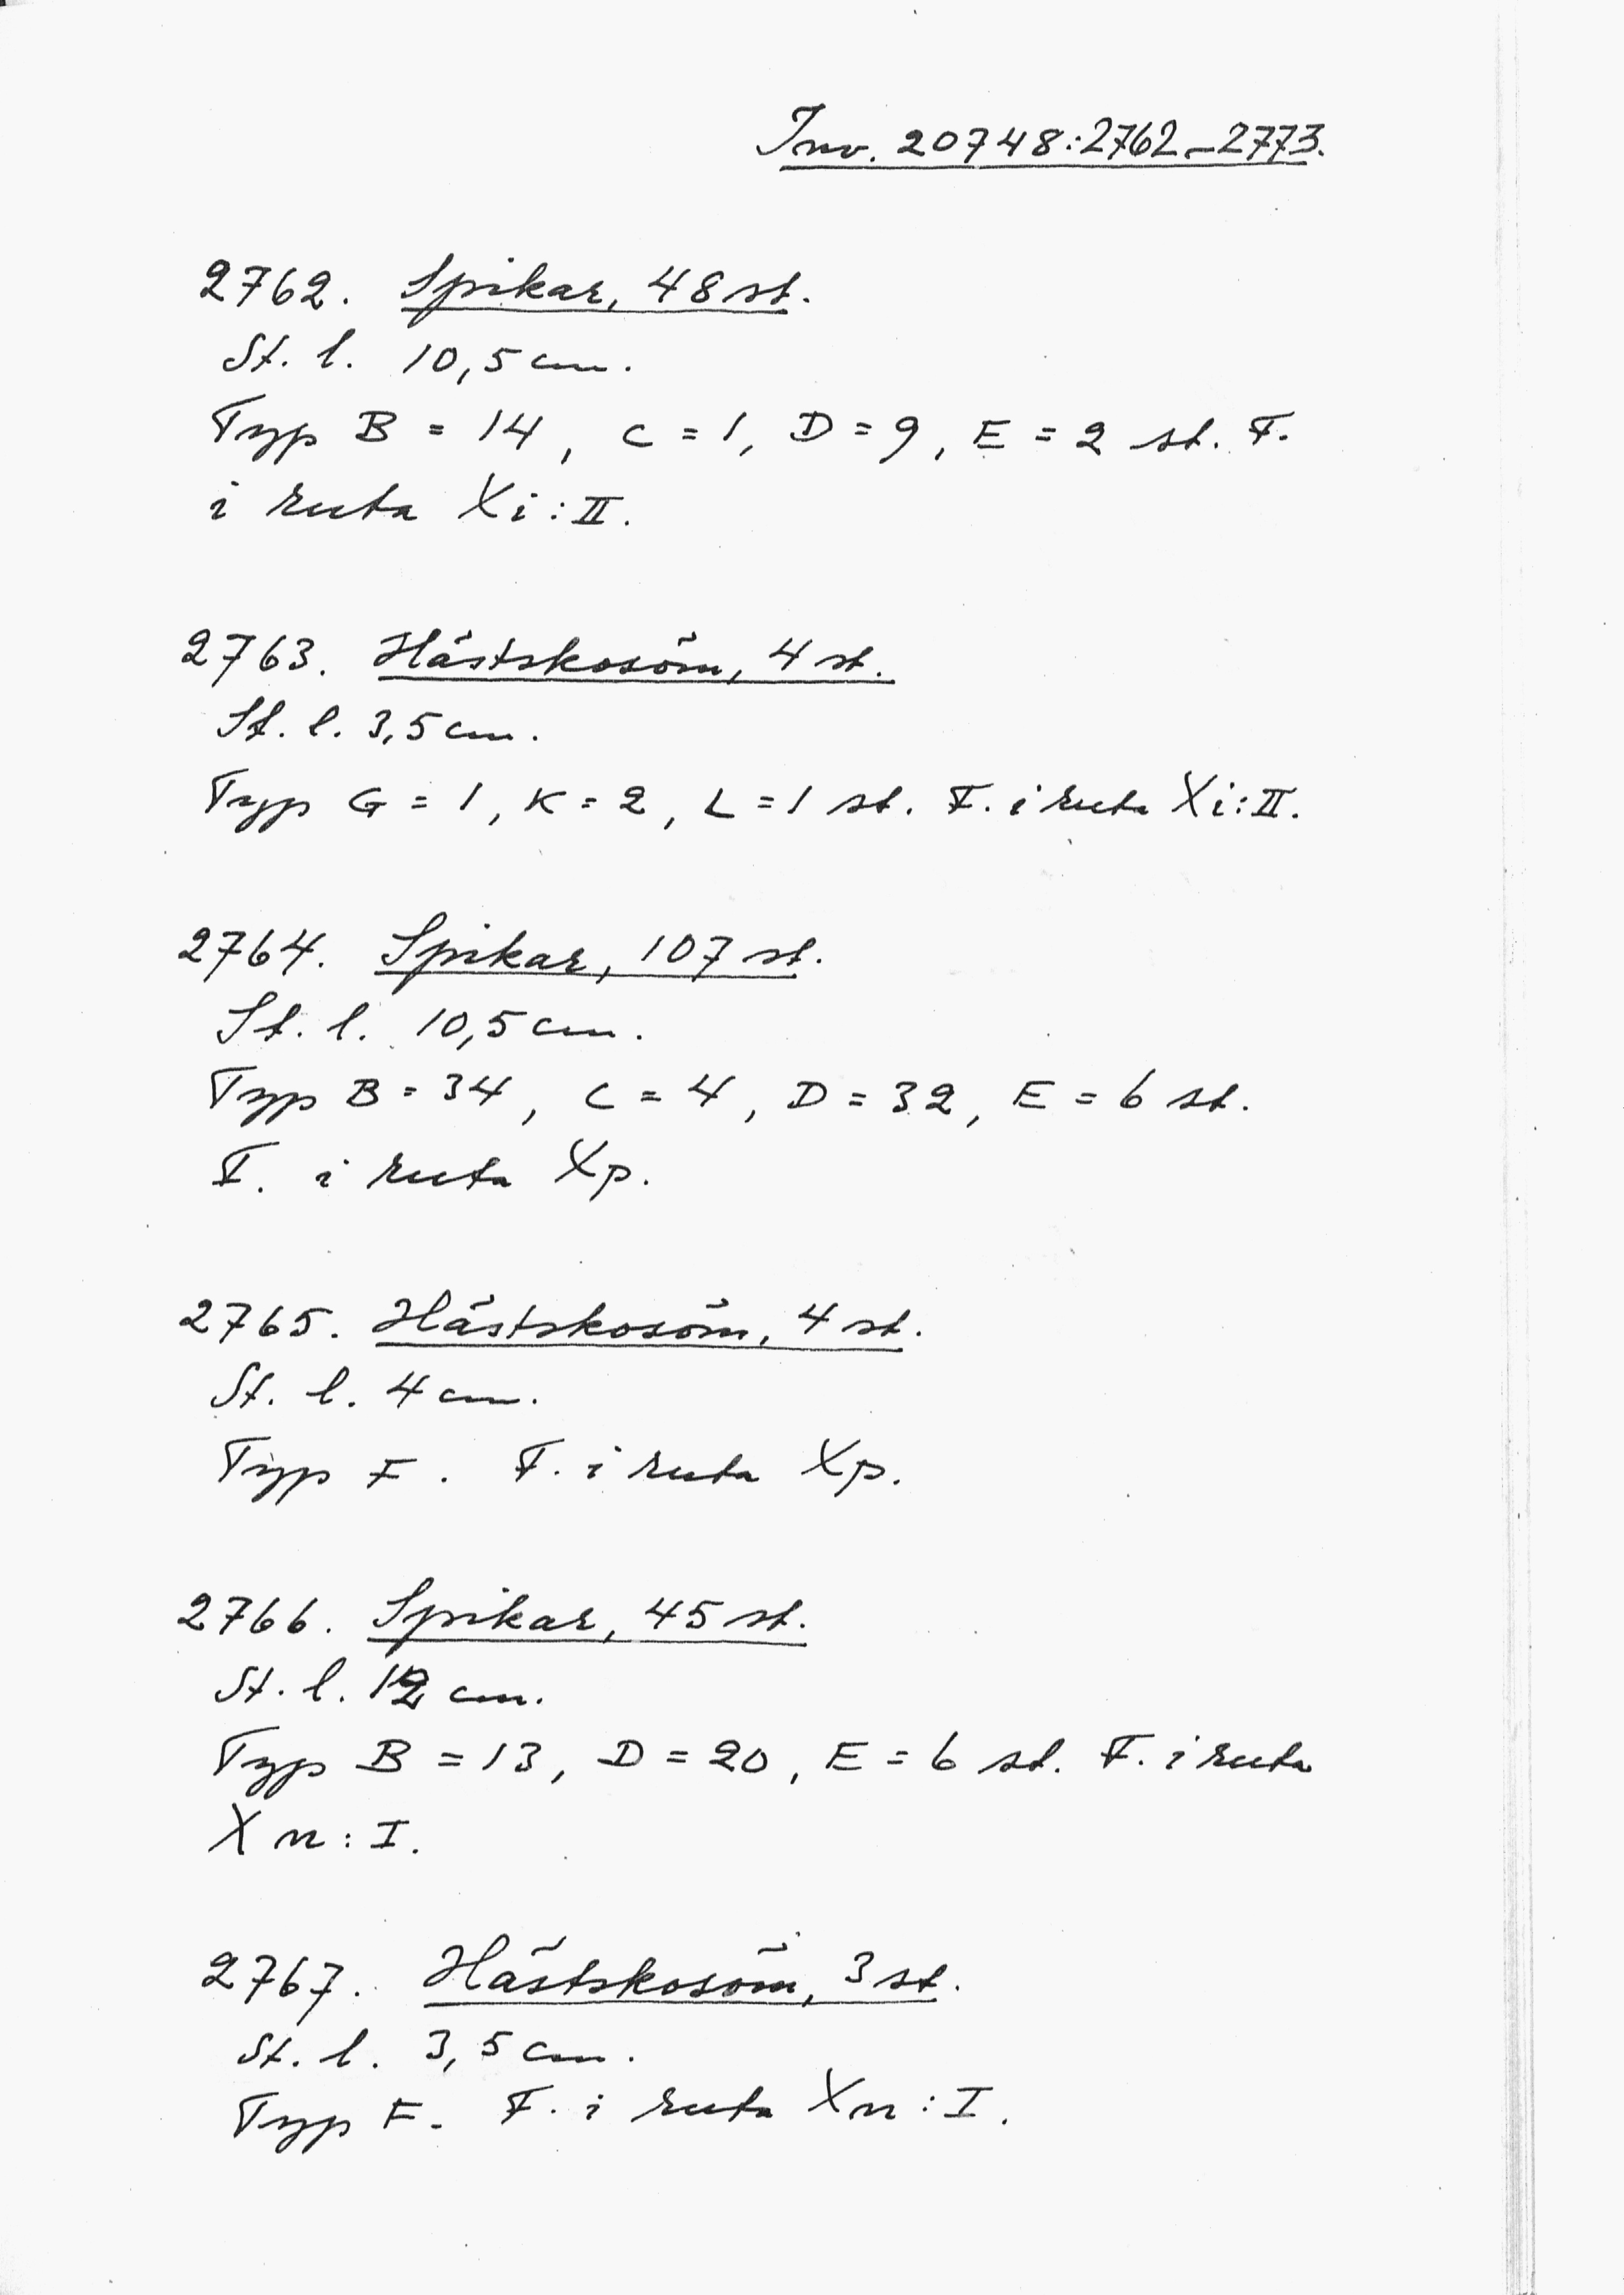 Inv. 20748:2762-2773.
2762. Spikar, 48 st.
St. l. 10,5 cm.
Typ B = 14, C = 1, D = 9, E = 2 st. F.
i ruta Xi:II.
2763. Hästskosöm, 4 st.
St. l. 3,5 cm.
Typ G = 1, K = 2, L = 1 st. F. i ruta Xi:II.
2764. Spikar, 107 st.
St. l. 10,5 cm.
Typ B = 34, C = 4, D = 32, E = 6 st.
F. i ruta Xp.
2765. Hästskosöm, 4 st.
St. l. 4 cm.
Typ F. F. i ruta Xp.
2766. Spikar, 45 st.
St. l. 12 cm.
Typ B = 13, D = 20, E = 6 st. F. i ruta
Xn: I.
2767. Hästskosöm, 3 st.
St. l. 3,5 cm.
Typ F. F. i ruta Xn: I.